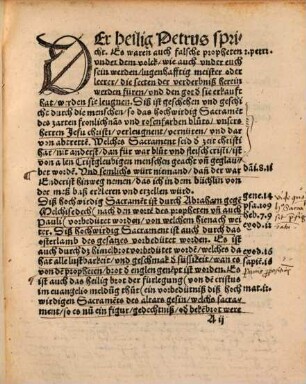 DEr heilig Petrus spri
cht. Es waren auch falsche propheten 2.petri
vnder dem volck/wie auch vnder euch
sein werden/lugenhafftig meister oder
letter/die secten der verderbniß herein
werden füren/vnd den got ď sie erkaufft
hat/werden sie leugnen. Diß ist geschehen vnd geschi
cht durch die menschen/so das hochwirdig Sacramēt
des zarten fronlichnā vnd rosenfarbē blůts/vnsers
herren Jesu christi/verleugnent/vernüten/vnd dar
von abtretēt. Welchs Sacramēt seid ď zeit christi
hat nit anderst/dan für war blůt vnd fleisch cristi/ist
von a len Cristgleubigen menschen geacht vñ geglau
bet wordē. Vnd semlichs würt niemand/dan der war
Endcrist hinweg nemen/das ich in eim büchlin vor
der meß daß ercleren vnd erzelen würd.
Diß hochwirdig Sacramēt ist durch Abraham gege
Melchisedech/nach den wortē des propheten vñ auch
Pauli vorbedütet worden/von welchem hienach wei
ter. Diß hochwirdig Sacrament ist auch durch das
osterlamb des gesatzes vorbedütet worden. Es ist
auch durch dz himelbrot vorbedütet wordē/welchs da
hat alle lustbarkeit/vnd geschmack ď süssikeit/wan es
von dē propheten/brot ď englen genēpt ist wordē. Es
ist auch das heilig brot der fürlegung/von dē cristus
im euangelio meldūg thůt/ein vorbedütniß diß hoch
wirdigen Sacramēts des altars gesin/welchs sacra
ment/so es nū ein figur/gedechtniß/od bekebrot were
A ij
dañ.8.11
gene.14
psal.109
heb.7.9
exod.12
exod.16
sapiē.16
mat.12